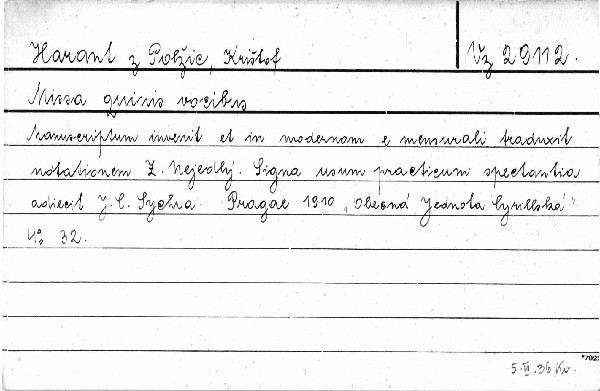 Harant z Polžic, Krištof Vz 29112.
Missa quinis vocibus
Manuscriptum invenit et in modernam e mensurali traduxit
notationem Z. Nejedlý. Signa usum practicum spectantia
adiecit J. C. Sychra. Pragae 1910 „Obecná Jednota Cyrillská"
No 32.
*702
5. VI. 36 Kv.